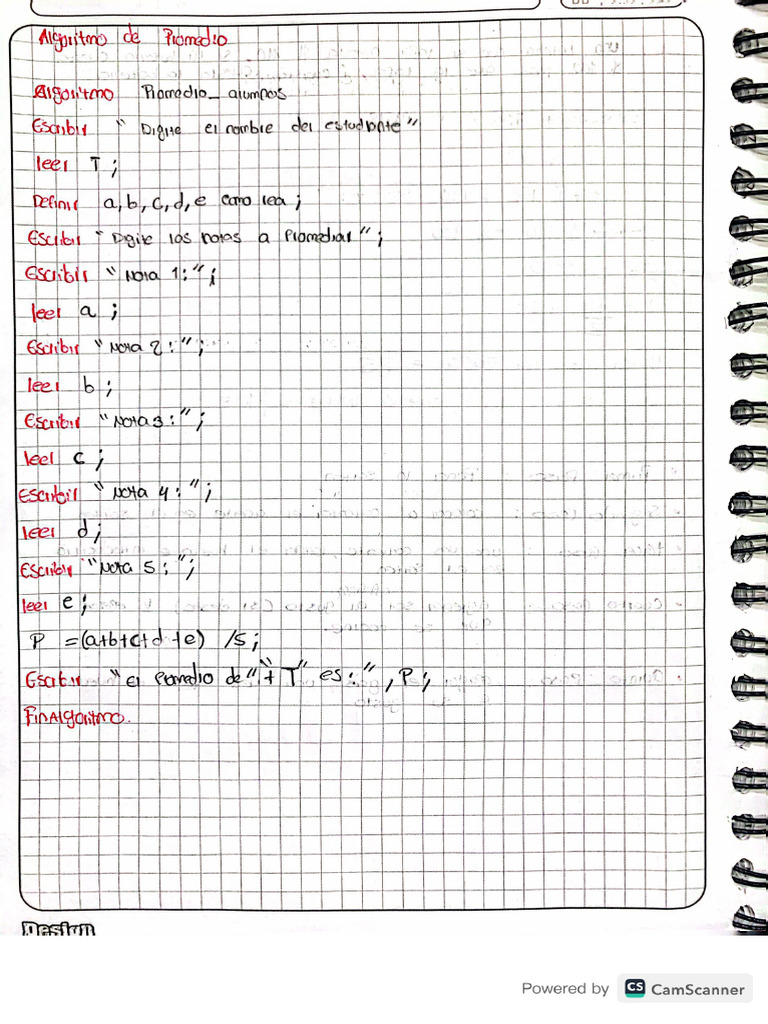 Algoritmo de Promedio
Algoritmo Promedio_alumnos
Escribir "Digite el nombre del estudiante"
leer T;
Definir a,b,c,d,e como rea;
Escribir "Digite las notas a Promediar";
Escribir "Nota 1:";
leer a;
Escribir "Nota 2:";
leer b;
Escribir "Nota 3:";
leer c;
Escribir "Nota 4:";
leer d;
Escribir "Nota 5:";
leer e;
P =(a+b+c+d+e) /5;
Escribir "el Promedio de "+ T" es:", P;
FinAlgoritmo.
Design
Powered by CS CamScanner